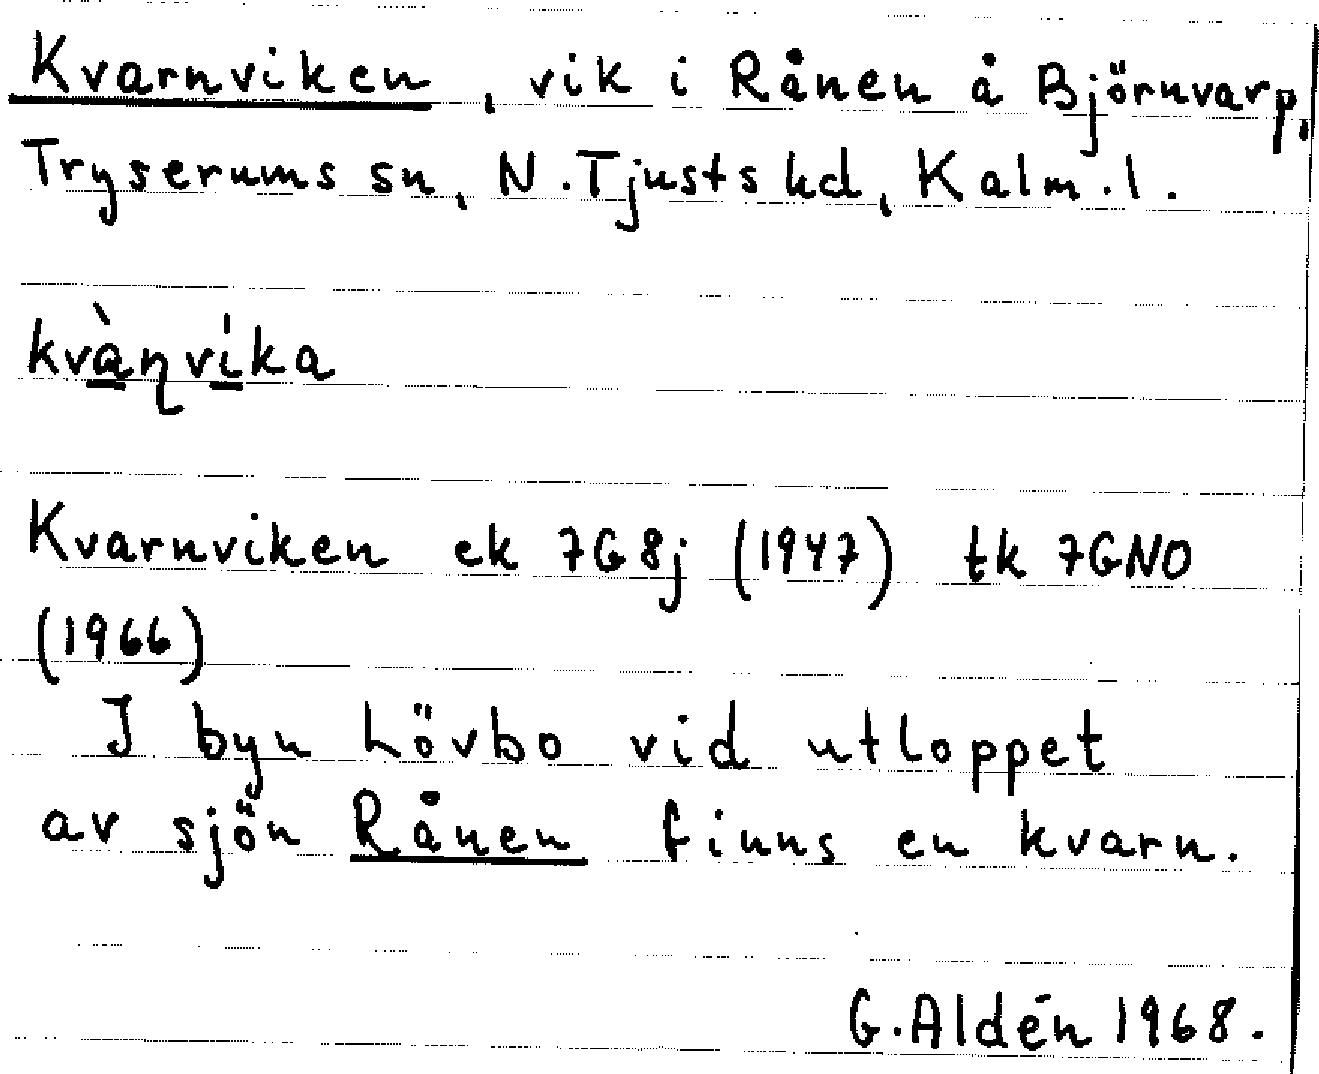 Kvarnviken, vik i Rånen å Björnvarp,
Tryserums sn, N.Tjusts hd, Kalm.l.
kvàɳvíka
Kvarnviken ek 7G8j (1947) tk 7GNO
(1966)
I byn Lövbo vid utloppet
av sjön Rånen finns en kvarn.
G.Aldén 1968.